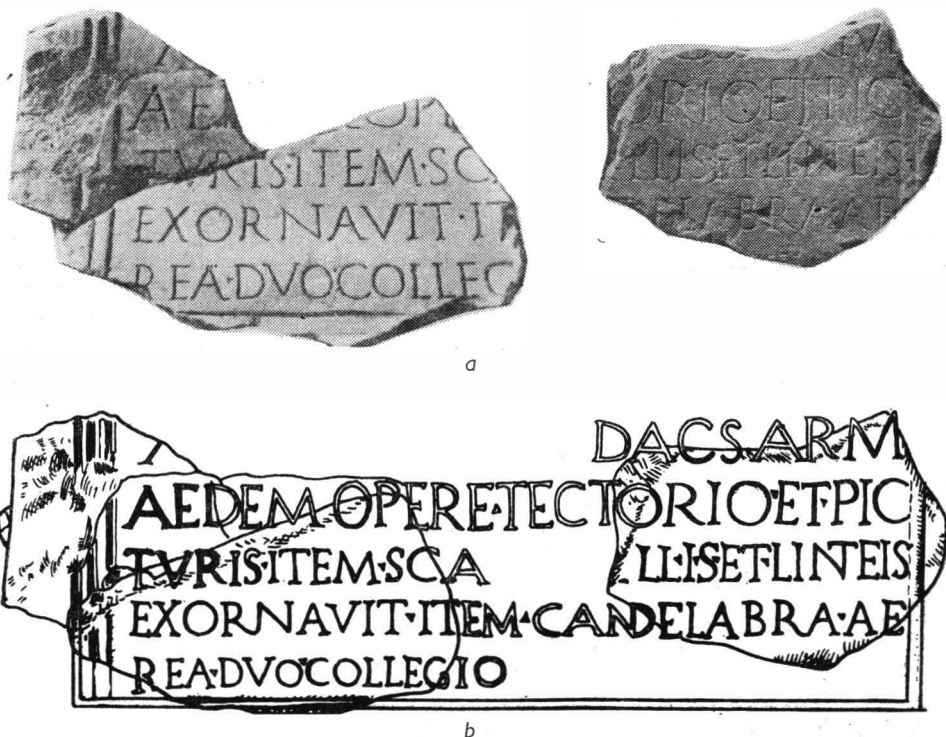 AE OP
TVRIS·ITEM·SC
EXORNAVIT·IT
REA·DVO·COLLEG
RIO·ET·PIC
LLIS·ET·LINTEIS
ELABRA·AE
a
DACS·ARM
AEDEM·OPERE·TECTORIO·ET·PIC
TVRIS·ITEM·SCA LLIS·ET·LINTEIS
EXORNAVIT·ITEM·CANDELABRA·AE
REA·DVO·COLLEGIO
b